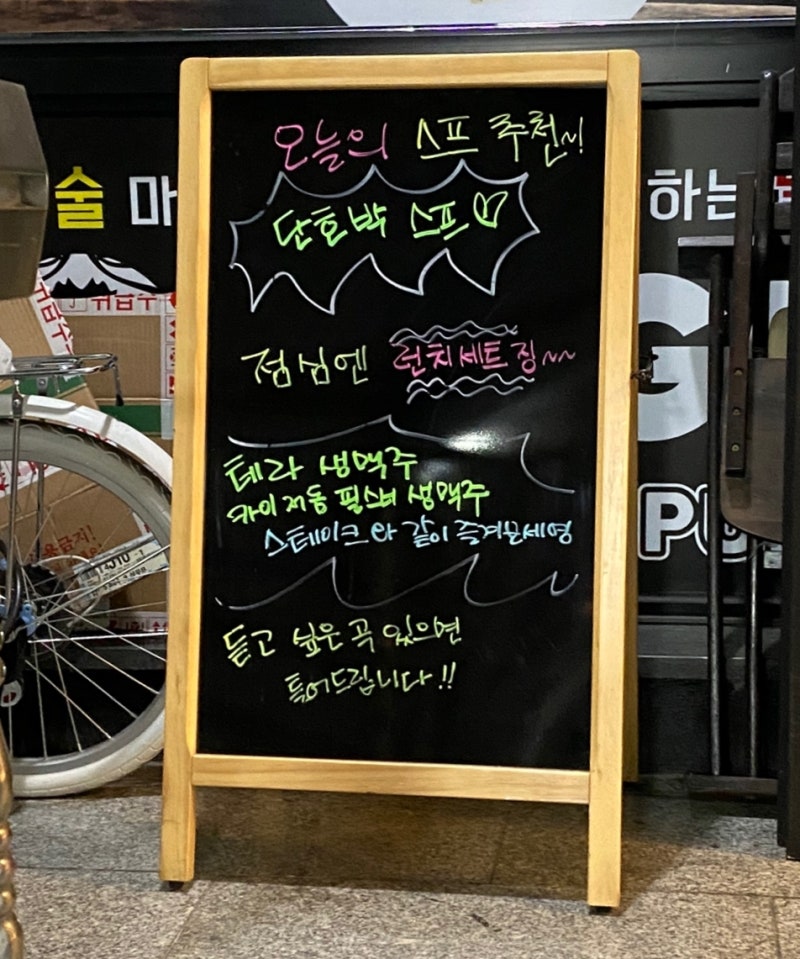 오늘의 스프 추천~!
단호박 스프
점심엔 런치세트 짱~~
테라 생맥주
카이저돔 필스너 생맥주
스테이크와 같이 즐겨보세영
듣고 싶은 곡 있으면
틀어드립니다!!
술 마
하는
취급주
G
PU